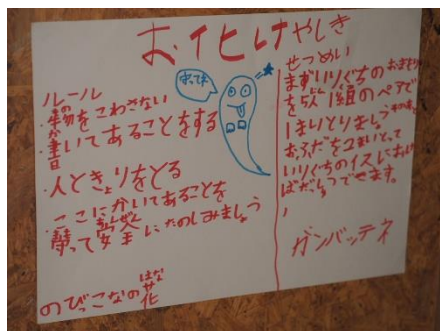 お化けやしき
ルール
・物をこわさない
・書いてあることをする
・人ときょりをとる
・ここにかいてあることを
守って安全にたのしみましょう
のびっこなの花
はな
せつめい
まずいりぐちの
を 1組のペアで
1まいとりましょう
おふだを1まいとって
いりぐちのイスにおけ
ばだっしゅつできます。
ガンバッテネ